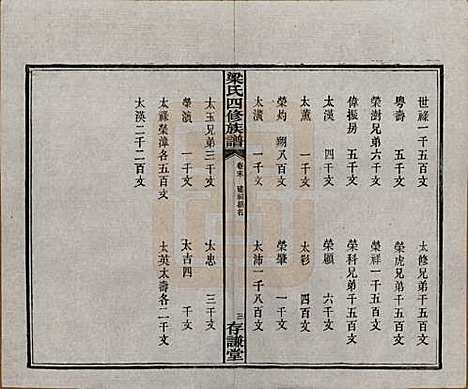 世祿一千五百文
太修兄弟千五百文
粵壽 五千文
榮虎兄弟千五百文
榮澍兄弟六千文
榮祥一千五百文
偉振房 五千文
榮科兄弟千五百文
太漢 四千文
榮顯 四千文
太薰 一千文
太彩 四百文
榮灼 翊八百文
榮肇 一千文
太濱 一千文
太沛一千八百文
梁氏四修族譜
卷末
建祠捐名
三
存謙堂
太玉兄弟三千文
太忠 三千文
榮濱 一千文
太吉四 千文
太祿榮漳各二百文
太英太壽各二千文
太漢二千二百文